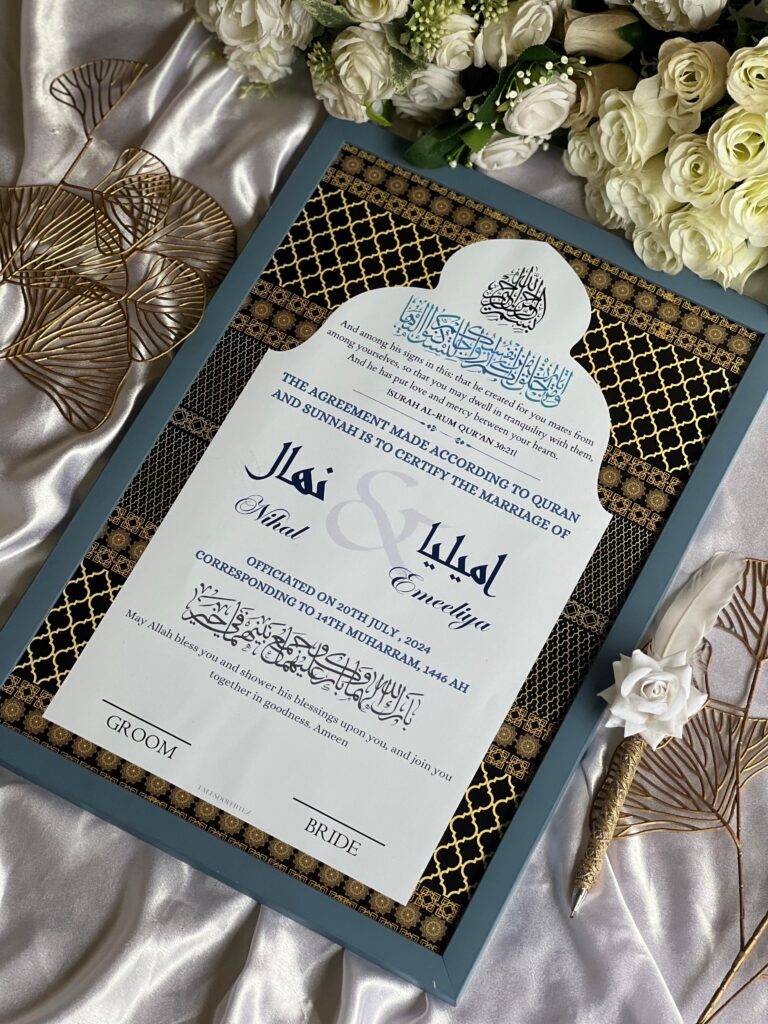 بسم الله الرحمن الرحيم
ومن آياته أن خلق لكم من أنفسكم أزواجا لتسكنوا إليها
And among his signs in this; that he created for you mates from
among yourselves, so that you may dwell in tranquility with them,
And he has put love and mercy between your hearts.
[SURAH AL-RUM QUR'AN 30:21]
THE AGREEMENT MADE ACCORDING TO QURAN
AND SUNNAH IS TO CERTIFY THE MARRIAGE OF
نهال
Nihal
&
اميليا
Emeeliya
OFFICIATED ON 20TH JULY , 2024
CORRESPONDING TO 14TH MUHARRAM, 1446 AH
بارك الله لكما وبارك عليكما وجمع بينكما في خير
May Allah bless you and shower his blessings upon you, and join you
together in goodness. Ameen
GROOM
BRIDE